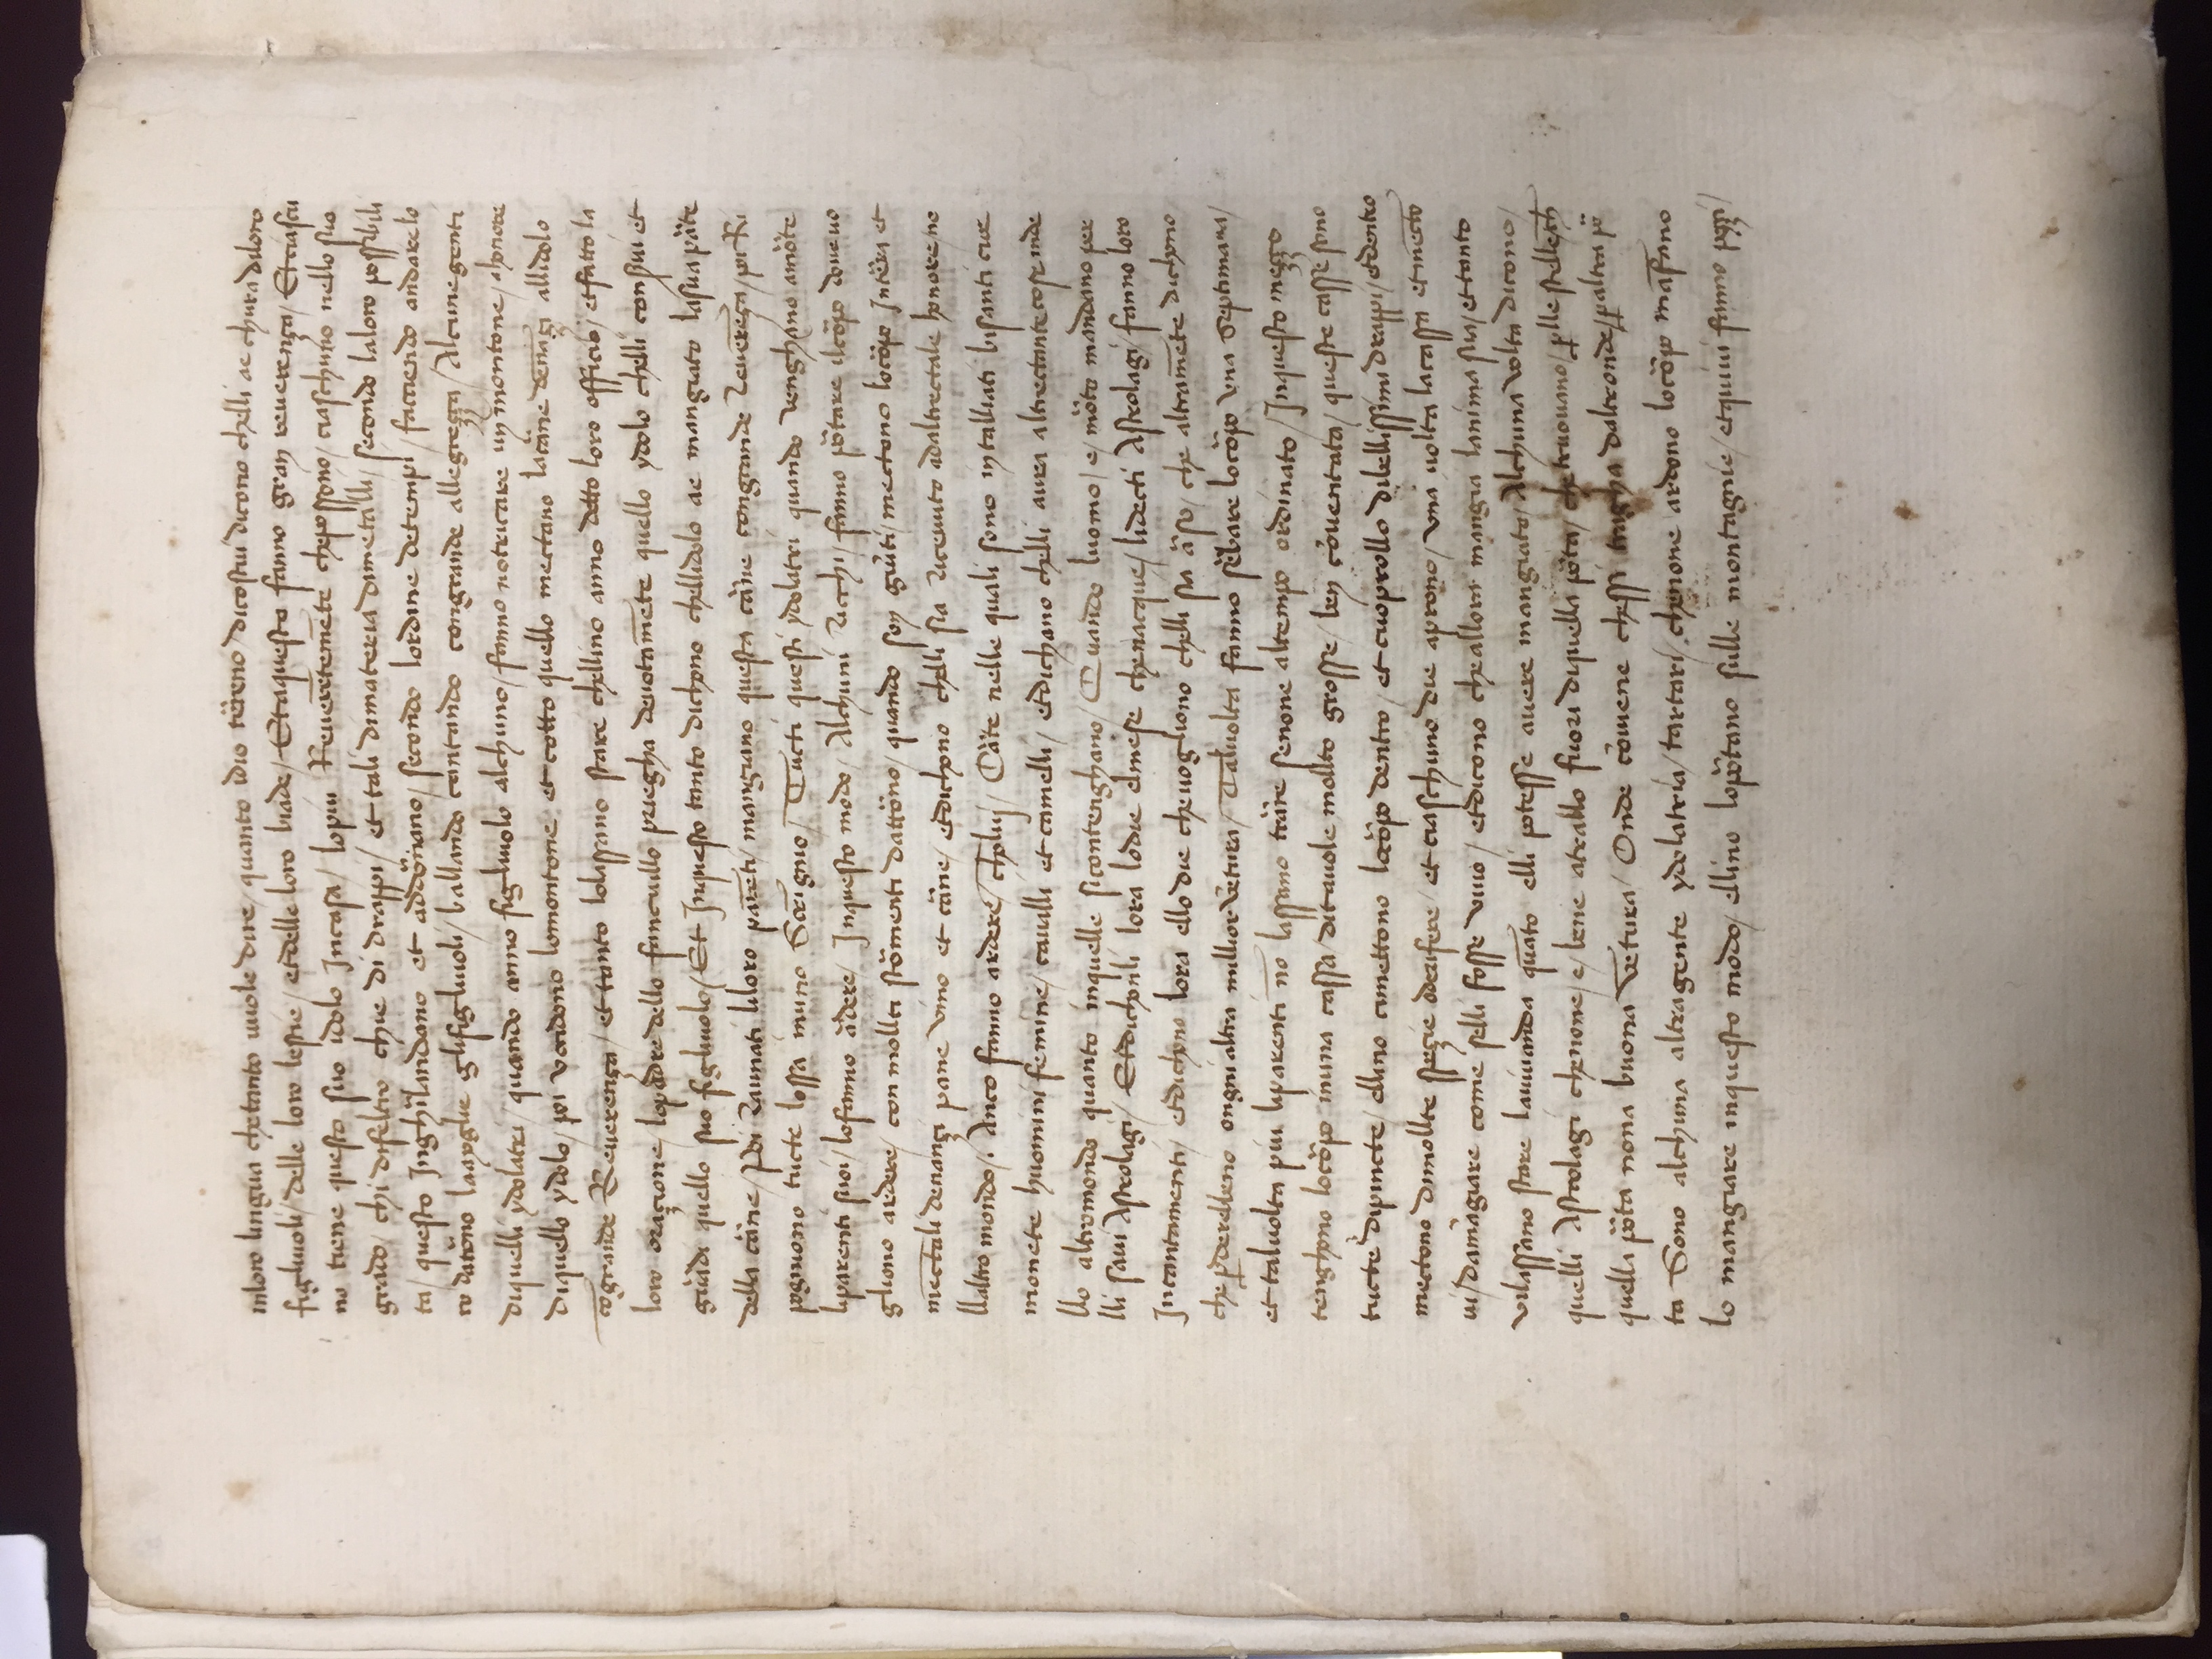 inloro lingua chetanto vuole dire / quanto idio tëreno / dicostui dicono chelli ae chura diloro
figliuoli / delle loro bestie / etdelle loro biade / Etaquesto fanno gran reverença / Etciascu
no tiene questo suo idolo Incasa / lopiu Reverētemēte chepossono / ciaschuno nello suo
grado / chi difeltro chie di drappi / et tali dimateria dimetalli / secondo laloro possibili
ta / questo Inghïlandano et addörnano / secondo lordine detempi / faccendo andarelo
ro datörno glifigliuoli / ballando cantando congrande allegreçça / Alcunegenti
diquelli ydolatri / quando anno figliuolo alchuno / fanno notricare un montone / ahonore
diquello ydolo / poi uccidono lomontone et cotto quello mectano lacäne denāçi allidolo
cōgrande Reverença / et tanto lolassano stare chellino anno detto loro officio / etfatto la
loro oraçione / lopadre dello fanciullo priegha devotamēte quello ydolo chelli conservi et
guädi quello suo figliuolo / Et Inquesto tanto dichono chellidolo ae mangiato lasua päte
della cäne / Poi Raunati liloro parēti / mangiano questa cäne congrande Reverēça / poi Ri
pogniono tucte lossa inuno Scrignio / Tucti questi ydolatri quando venghano amöte
liparenti suoi / lofanno ädere / Inquesto modo / Alchuni Ricchi / fanno pötare ilcöpo doveuo
gliono ardere / con mollti stömenti dattöno / quando son giūti / mectono locöpo Intëra et
mectāli denançi pane vino et cäne / etdichono chelli sia Ricevuto adaltrectale honore / ne
llaltro mondo /. Anco fanno ardere / chōlui / Cäte nelle quali sono intalliati bisanti cioe
monete huomini femine / cavalli et camelli / etdichano chelli aura altrectantecose inde
llo altromondo quanto inquelle sicontenghano / Quando luomo / e / möto mandano per
lli savi Astrolagi / Etdichonli lora lodie elmese chenacque / lidecti Astrolagi / fanno loro
Incantamenti / etdichono lora ello die chevogliono chelli sia äso / che altramēte dichono
che p̄derebbeno ongni altra millior vētura / Talvolta fanno sëbare locöpo una septimana /
et talvolta piu liparenti nō lassano träre senone altempo ordinato / Inquesto meçço
tenghono locöpo inuna cassa / ditavole mollto grosse / ben cōventata / queste casse sono
tucte dipincte / ellino cimettono locöpo dentro / et cuoprollo dibellissimi drappi / etdentro
mectono dimollte speçie oderifere / et ciaschuno die aprono / una volta lacassa etmectō
vi / damāgiare come selli fosse vivo / etdicono cheallora mangia lanima sua / ettanto
vilassano stare lavivanda quāto elli potesse avere mangiato / Alchuna volta dicono /
quelli Astrolagi chenone / e / bene atrallo fuori diquella pöta / che truovano / p̄lle stelle / ch̄
quella pöta nona buona vētura / Onde cōviene chessi tragha daltronde / p̄altra pö
ta Sono alchuna altragente ydolatria / tartari / chenone ardono locöpo mafāno
lo mangiare inquesto modo / ellino lopötano sulle montagnie / etquivi fanno poççi /